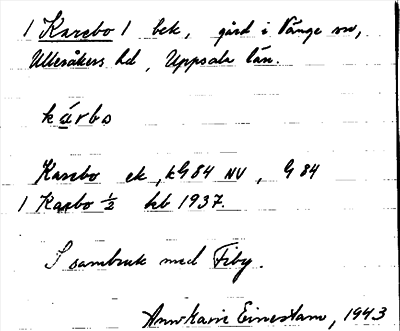 1 Karebo 1 bek, gård i Vänge sn,
Ulleråkers hd, Uppsala län.
kárbo
Karebo ek, kG84 NV, G 84
1 Karbo ½ hb 1937.
I sambruk med Fiby.
Ann Marie 1943